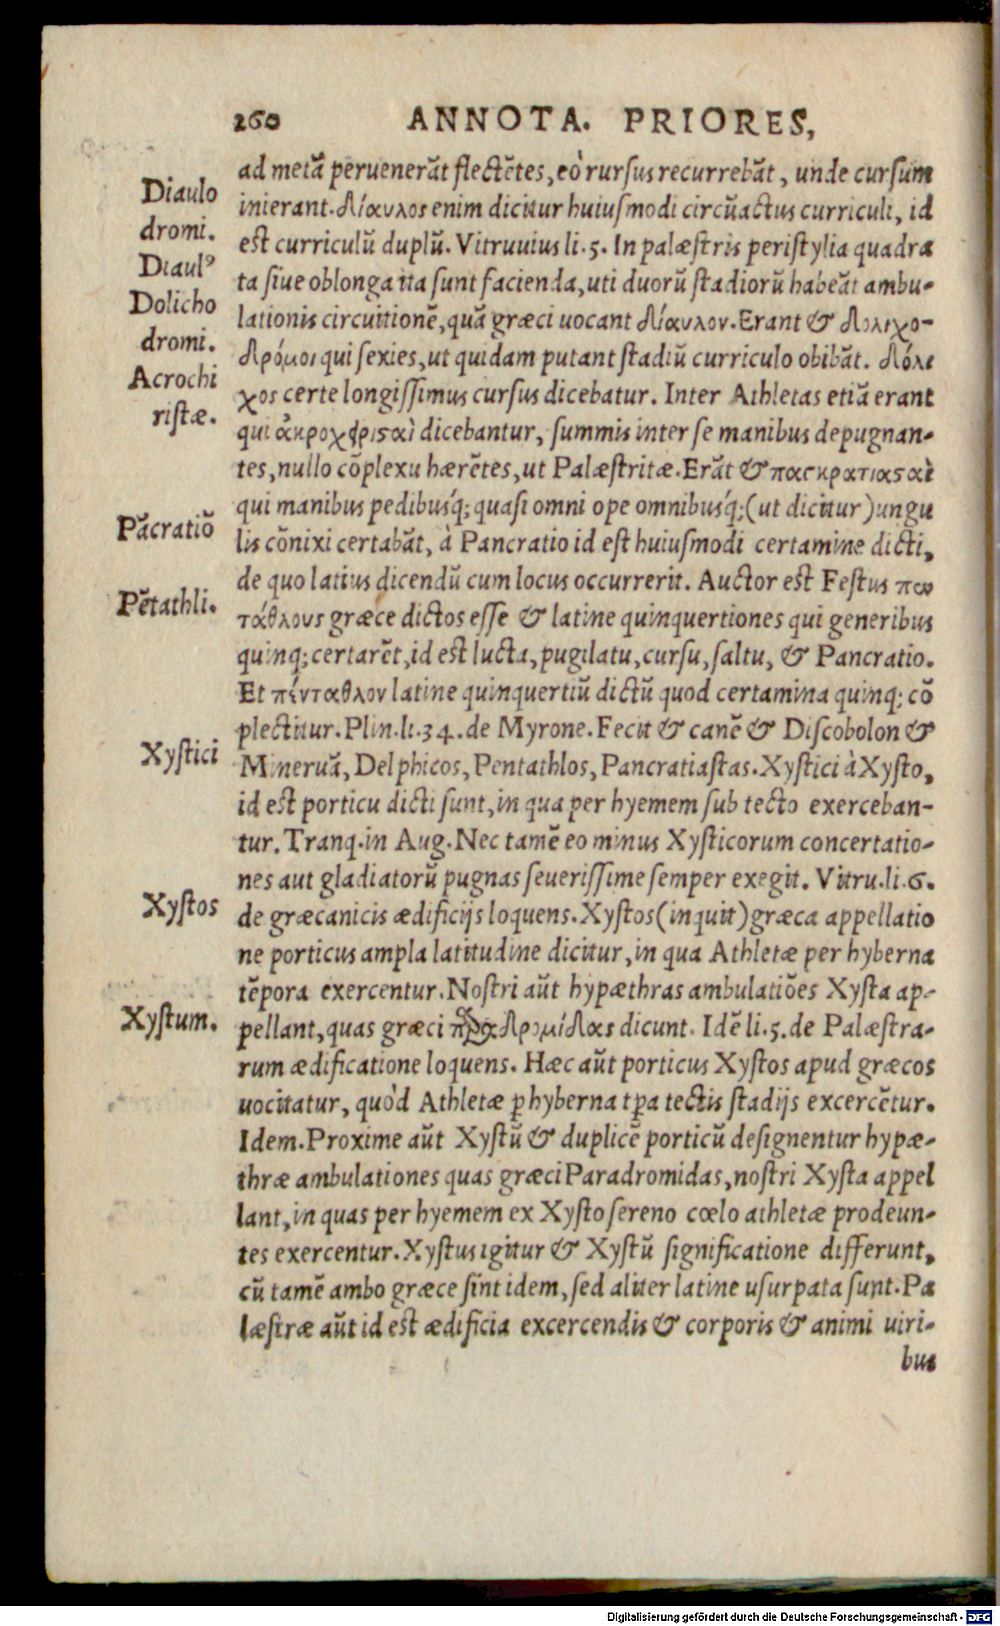 260 ANNOTA. PRIORES,
Diaulo
dromi.
Diaulꝰ
Dolicho
dromi.
Acrochi
ristæ.
Pãcratiõ
Pẽtathli.
Xystici
Xystos
Xystum.
ad metã peruenerãt flectẽtes, eò rursus recurrebãt, unde cursum
inierant. δίαυλος enim dicitur huiusmodi circũactus curriculi, id
est curriculũ duplũ. Vitruuius li. 5. In palæstris peristylia quadra
ta siue oblonga ita sunt facienda, uti duorũ stadiorũ habeãt ambu-
lationis circuitionẽ, quã græci uocant δίαυλον. Erant & δολιχο-
δρόμοι qui sexies, ut quidam putant stadiũ curriculo obibãt. δόλι
χος certe longissimus cursus dicebatur. Inter Athletas etiã erant
qui ἀκροχειρισαὶ dicebantur, summis inter se manibus depugnan-
tes, nullo cõplexu hærẽtes, ut Palæstritæ. Erãt & παγκρατιασαὶ
qui manibus pedibusq́; quasi omni ope omnibusq́; (ut dicitur) ungu
lis cõnixi certabãt, à Pancratio id est huiusmodi certamine dicti,
de quo latius dicendũ cum locus occurrerit. Auctor est Festus πεν
τάθλους græce dictos esse & latine quinquertiones qui generibus
quinq; certarẽt, id est lucta, pugilatu, cursu, saltu, & Pancratio.
Et πένταθλον latine quinquertiũ dictũ quod certamina quinq; cõ
plectitur. Plin. li. 34. de Myrone. Fecit & canẽ & Discobolon &
Mineruã, Delphicos, Pentathlos, Pancratiastas. Xystici à Xysto,
id est porticu dicti sunt, in qua per hyemem sub tecto exerceban-
tur. Tranq. in Aug. Nec tamẽ eo minus Xysticorum concertatio-
nes aut gladiatorũ pugnas seuerissime semper exegit. Vitru. li. 6.
de græcanicis ædificijs loquens. Xystos (inquit) græca appellatio
ne porticus ampla latitudine dicitur, in qua Athletæ per hyberna
tẽpora exercentur. Nostri aũt hypæthras ambulatiões Xysta ap-
pellant, quas græci παραδρομίδας dicunt. Idẽ li. 5. de Palæstra-
rum ædificatione loquens. Hæc aũt porticus Xystos apud græcos
uocitatur, quòd Athletæ ꝑ hyberna tꝑa tectis stadijs excercẽtur.
Idem. Proxime aũt Xystũ & duplicẽ porticũ designentur hypæ-
thræ ambulationes quas græci Paradromidas, nostri Xysta appel
lant, in quas per hyemem ex Xysto sereno cœlo athletæ prodeun-
tes exercentur. Xystus igitur & Xystũ significatione differunt,
cũ tamẽ ambo græce sint idem, sed aliter latine usurpata sunt. Pa
læstræ aũt id est ædificia excercendis & corporis & animi uiri-
bus
Digitalisierung gefördert durch die Deutsche Forschungsgemeinschaft - DFG